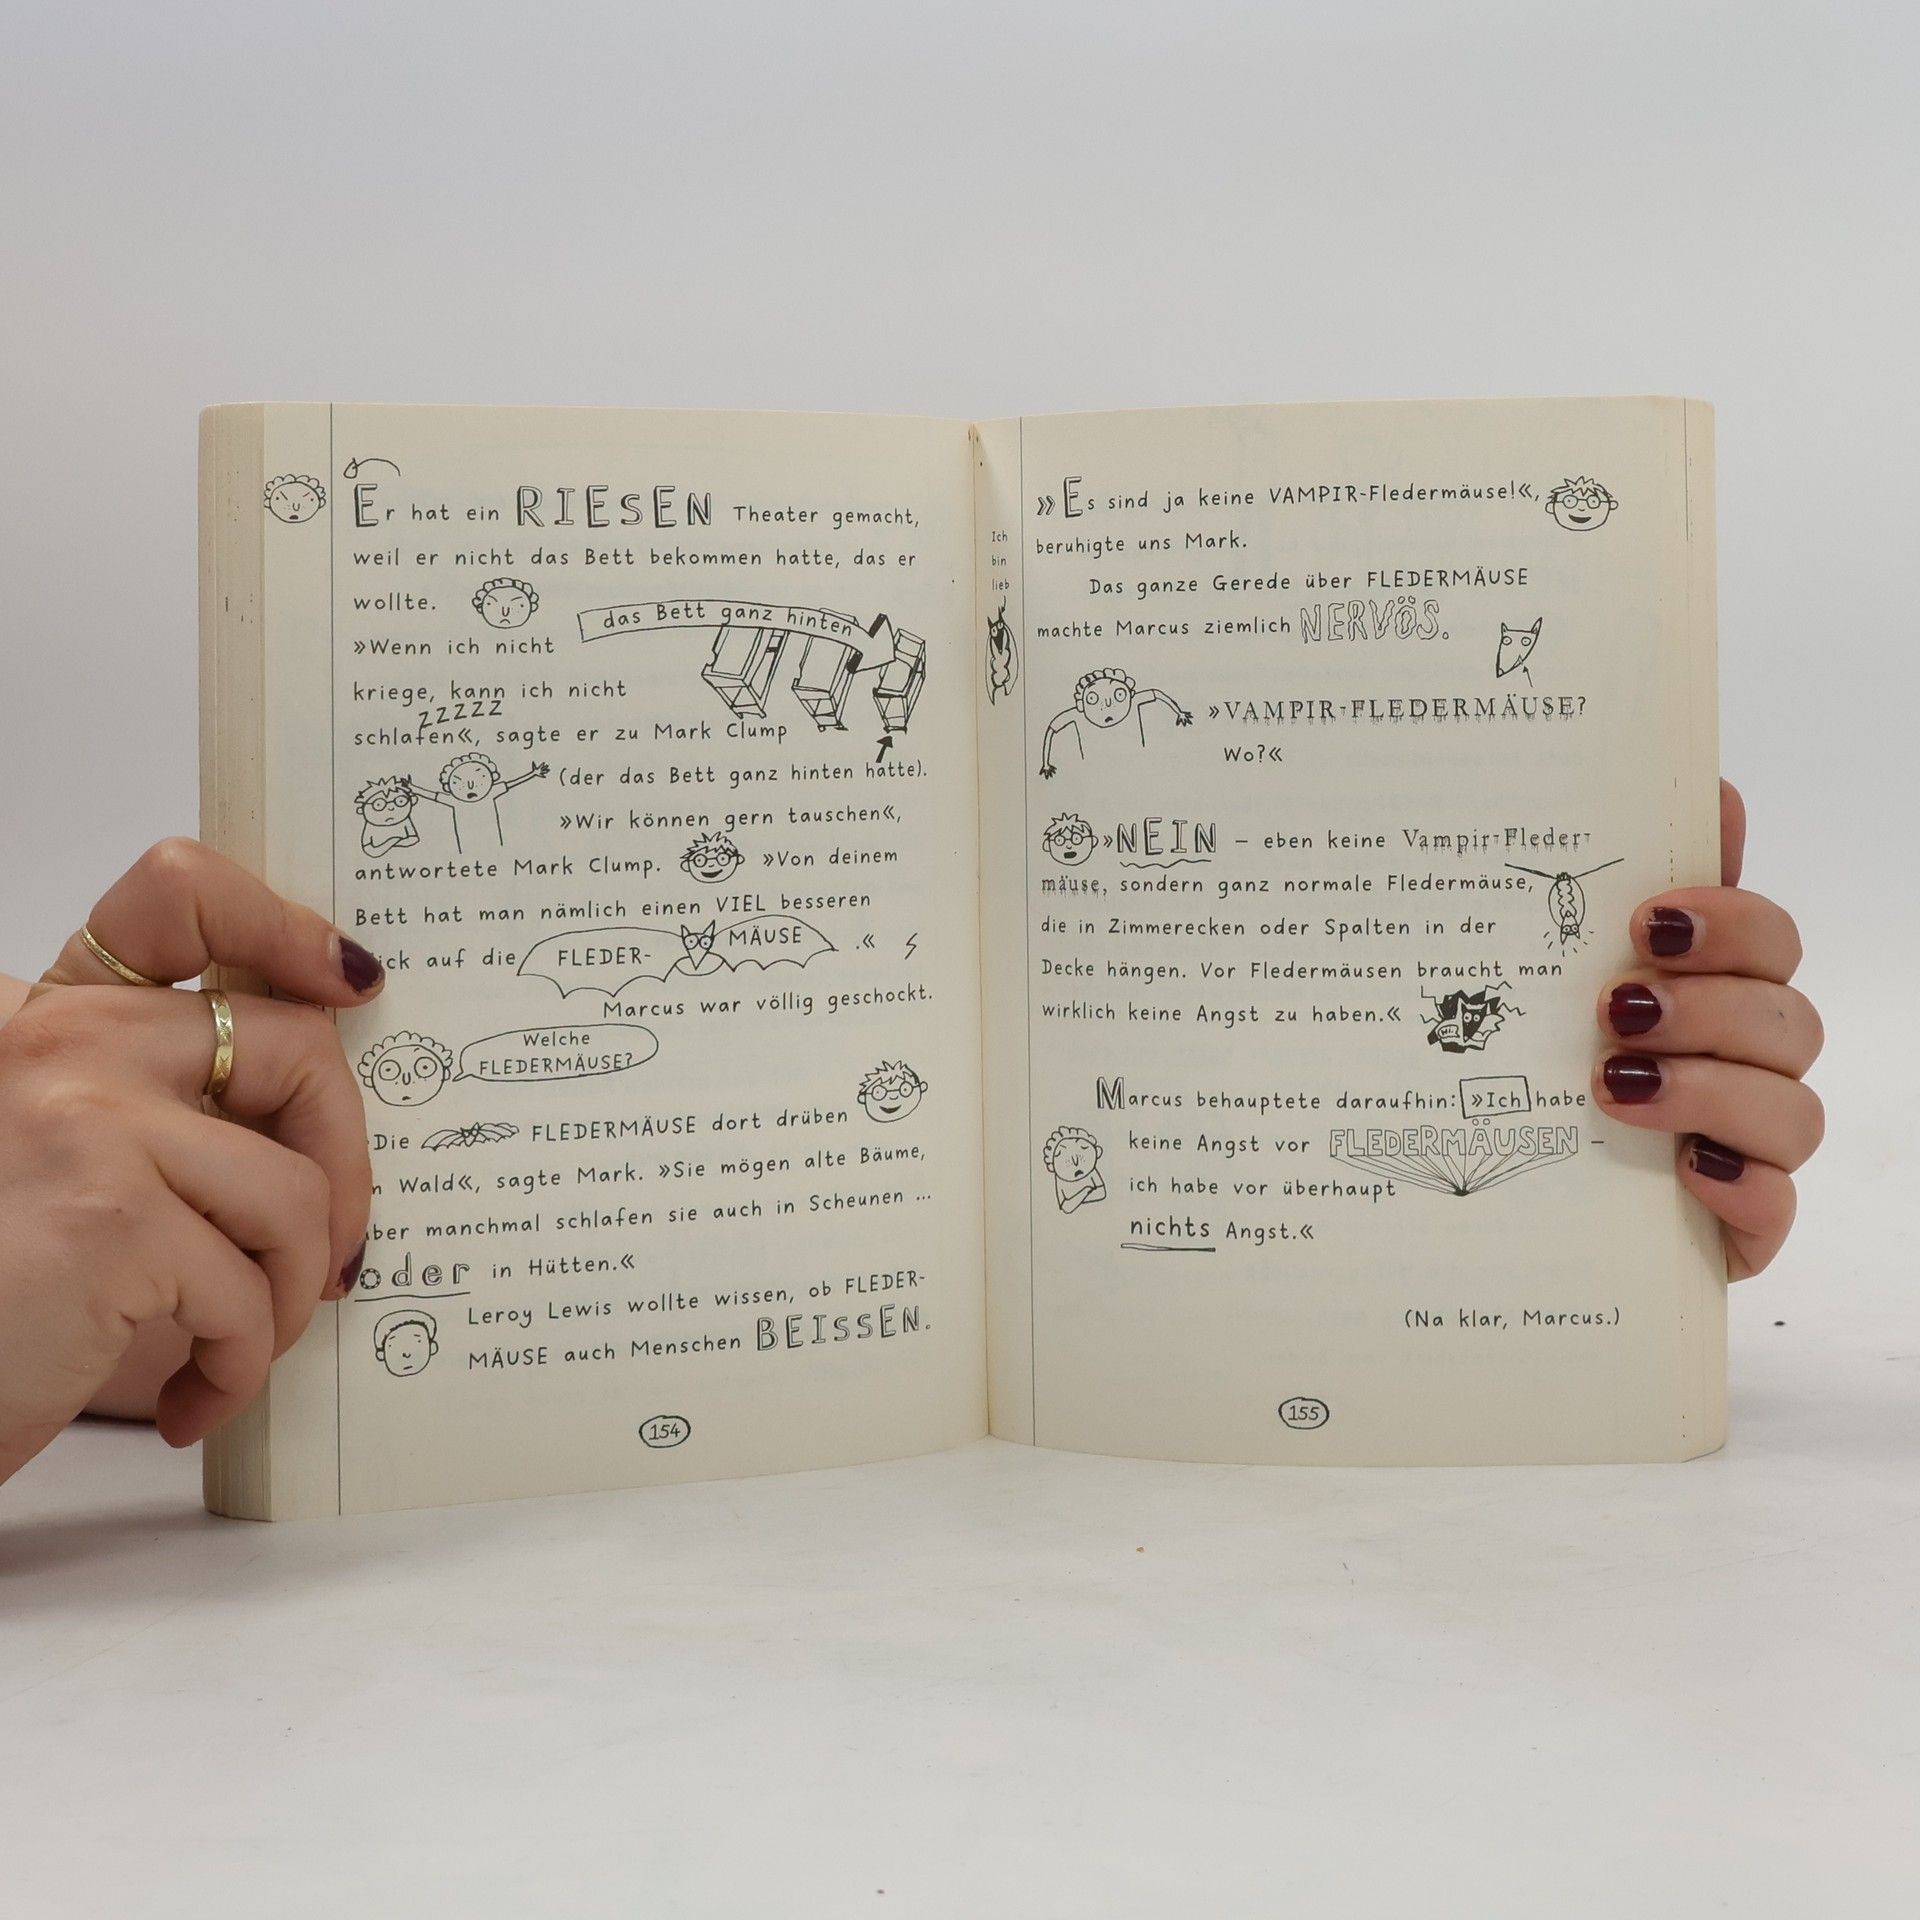 Er hat ein RIESEN Theater gemacht,
weil er nicht das Bett bekommen hatte, das er
wollte.
das Bett ganz hinten
»Wenn ich nicht
kriege, kann ich nicht
zzzzz
schlafen«, sagte er zu Mark Clump
(der das Bett ganz hinten hatte).
»Wir können gern tauschen«,
antwortete Mark Clump. »Von deinem
Bett hat man nämlich einen VIEL besseren
ick auf die FLEDER- MÄUSE .«
Marcus war völlig geschockt.
Welche
FLEDERMÄUSE?
Die FLEDERMÄUSE dort drüben
Wald«, sagte Mark. »Sie mögen alte Bäume,
ber manchmal schlafen sie auch in Scheunen ...
oder in Hütten.«
Leroy Lewis wollte wissen, ob FLEDER-
MÄUSE auch Menschen BEISSEN.
154
Ich
bin
lieb
»Es sind ja keine VAMPIR-Fledermäuse!«,
beruhigte uns Mark.
Das ganze Gerede über FLEDERMÄUSE
machte Marcus ziemlich NERVÖS.
»VAMPIR-FLEDERMÄUSE?
Wo?«
»NEIN – eben keine Vampir-Fleder-
mäuse, sondern ganz normale Fledermäuse,
die in Zimmerecken oder Spalten in der
Decke hängen. Vor Fledermäusen braucht man
wirklich keine Angst zu haben.«
Marcus behauptete daraufhin: »Ich habe
keine Angst vor FLEDERMÄUSEN –
ich habe vor überhaupt
nichts Angst.«
(Na klar, Marcus.)
155